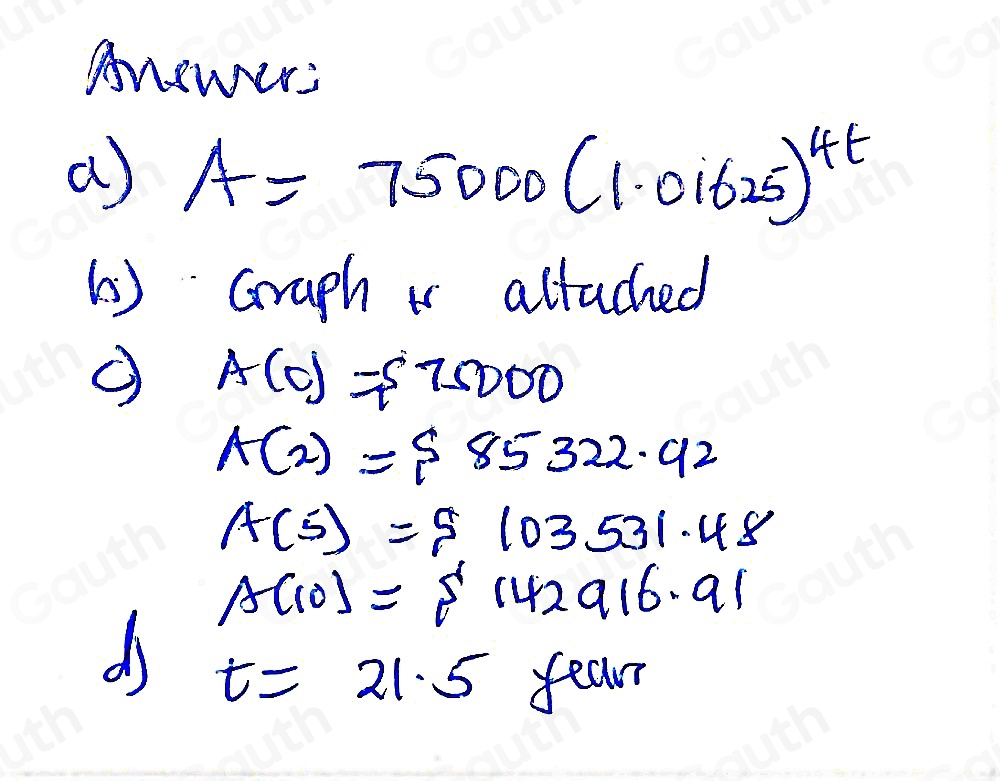 Answers:
a) A = 75000 (1.01625)^4t
b) Graph is attached
c) A(0) = $75000
A(2) = $ 85322.92
A(5) = $ 103531.48
A(10) = $ 142916.91
d) t = 21.5 years